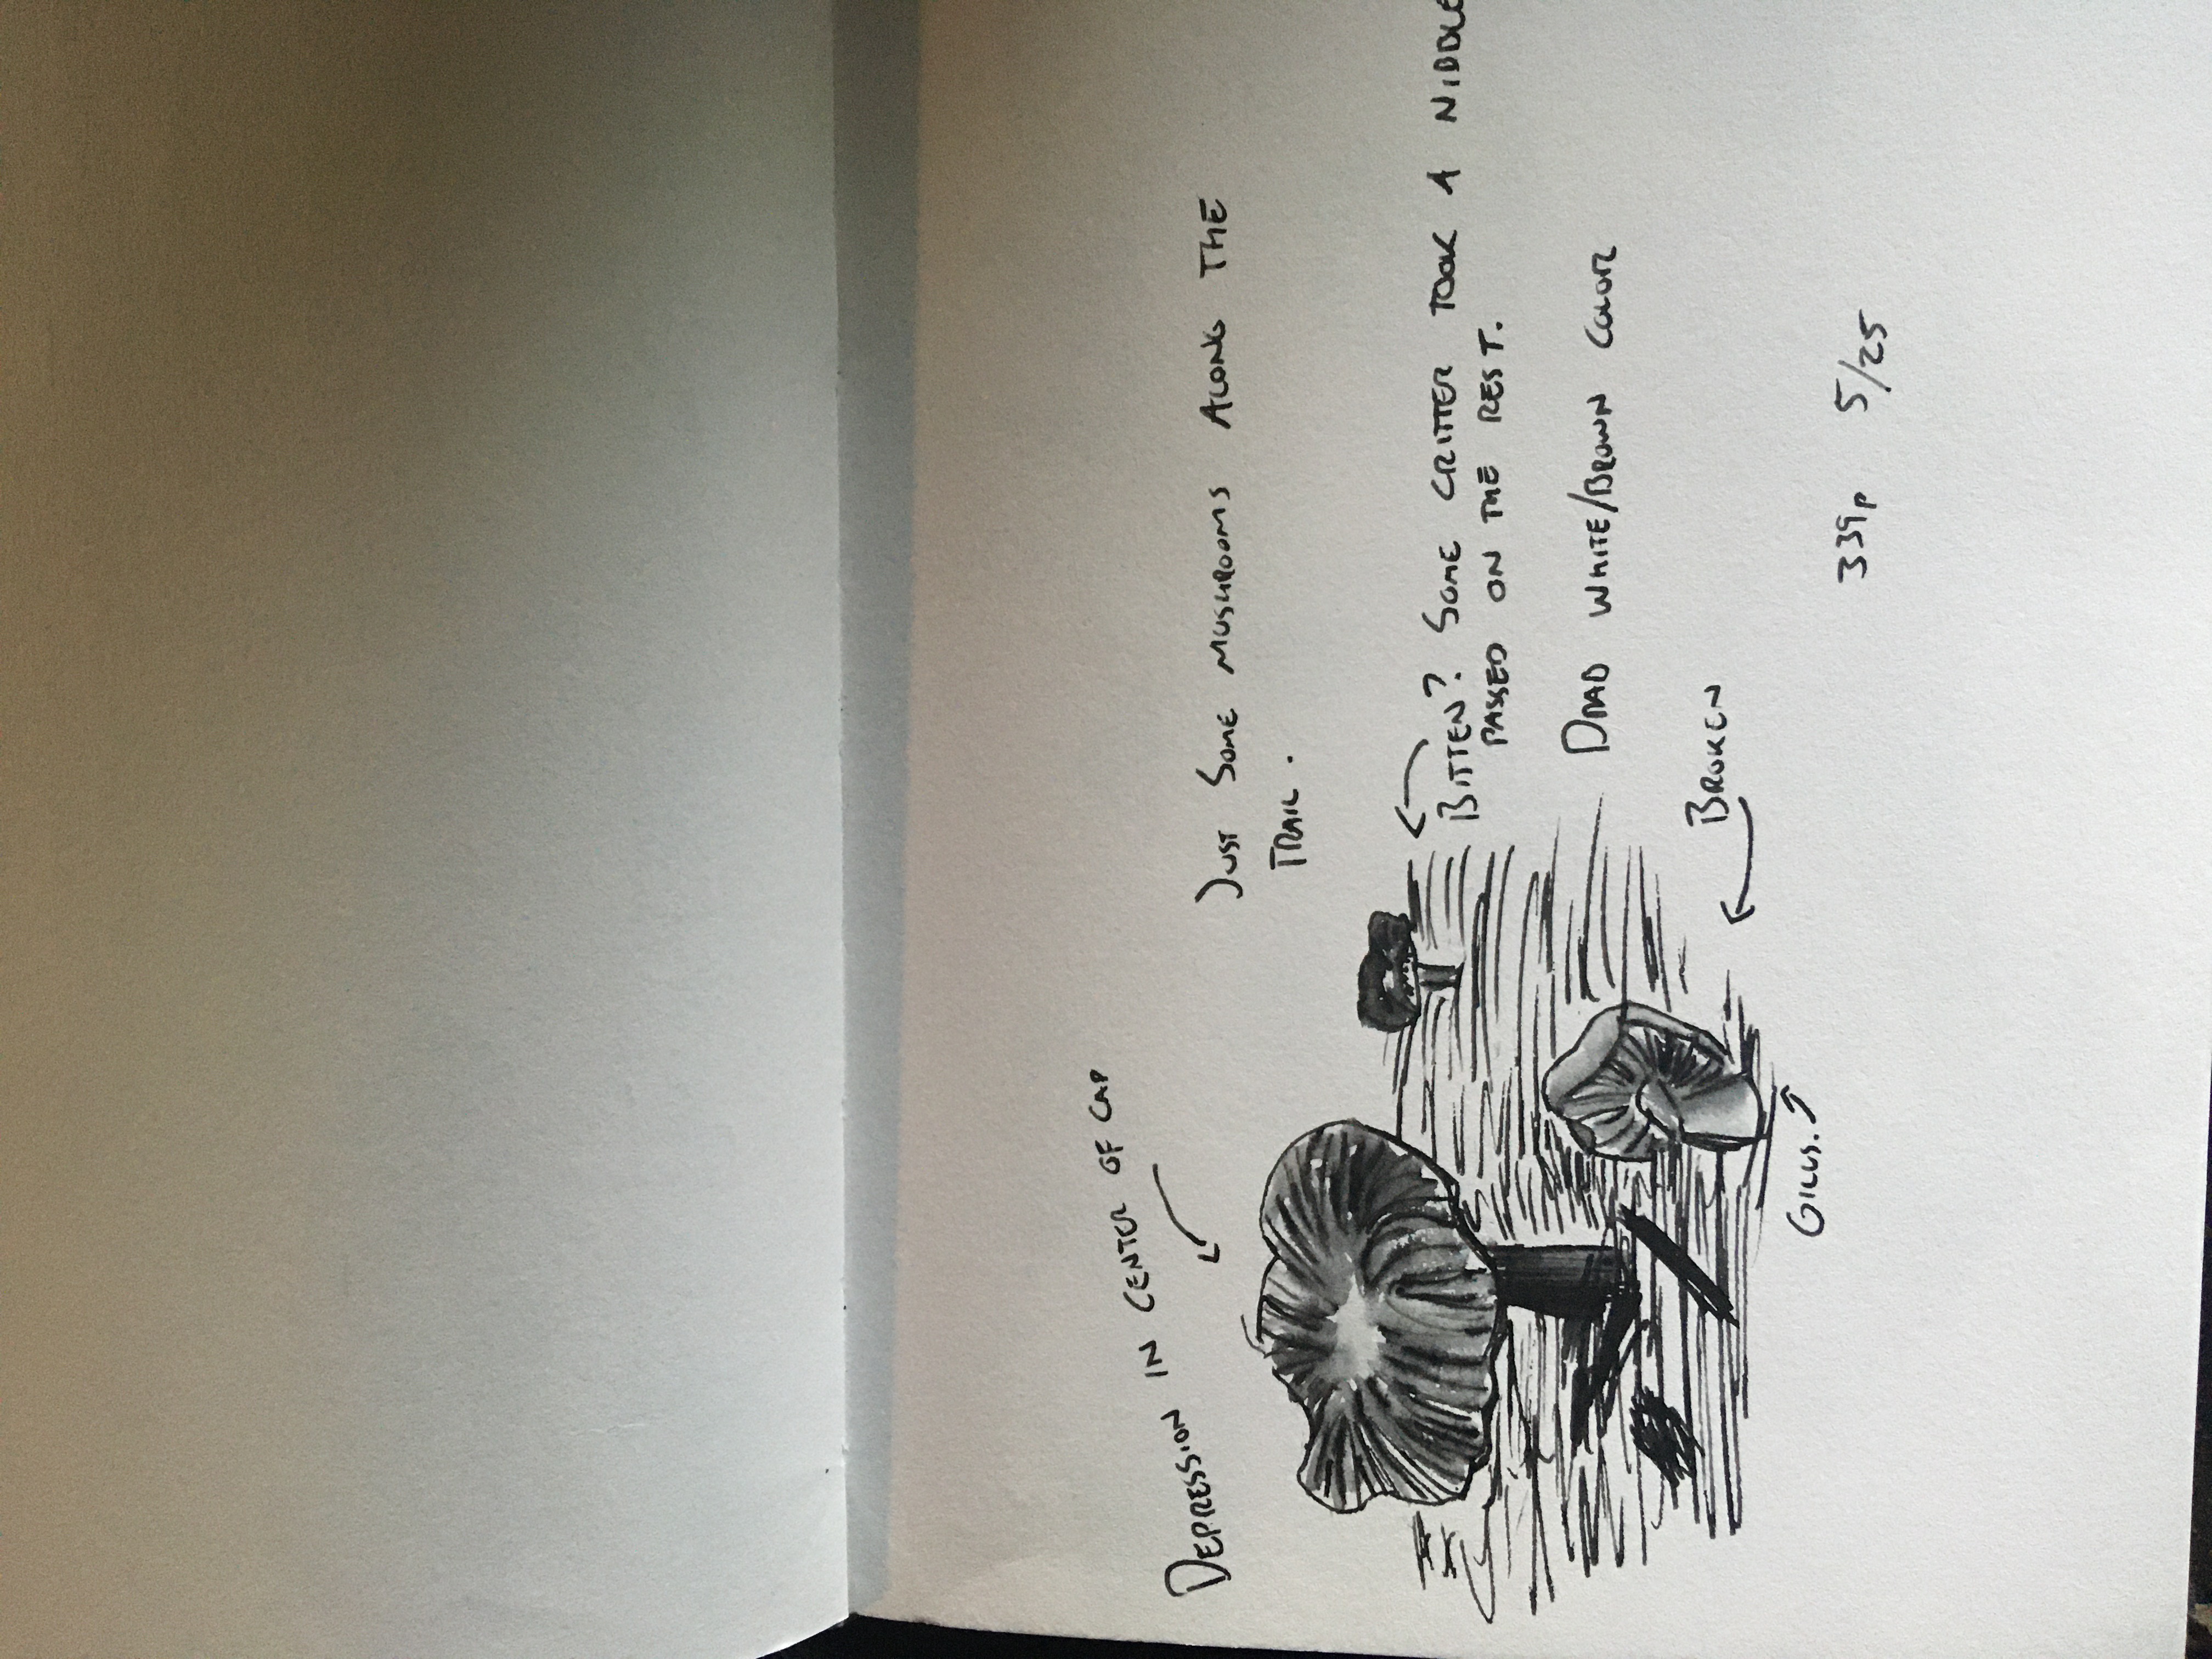 DEPRESSION IN CENTER OF CAP
JUST SOME MUSHROOMS ALONG THE
TRAIL.
BITTEN? SOME CRITTER TOOK A NIBBLE
PASSED ON THE REST.
DRAB WHITE/BROWN COLOR
BROKEN
GILLS.
339p 5/25